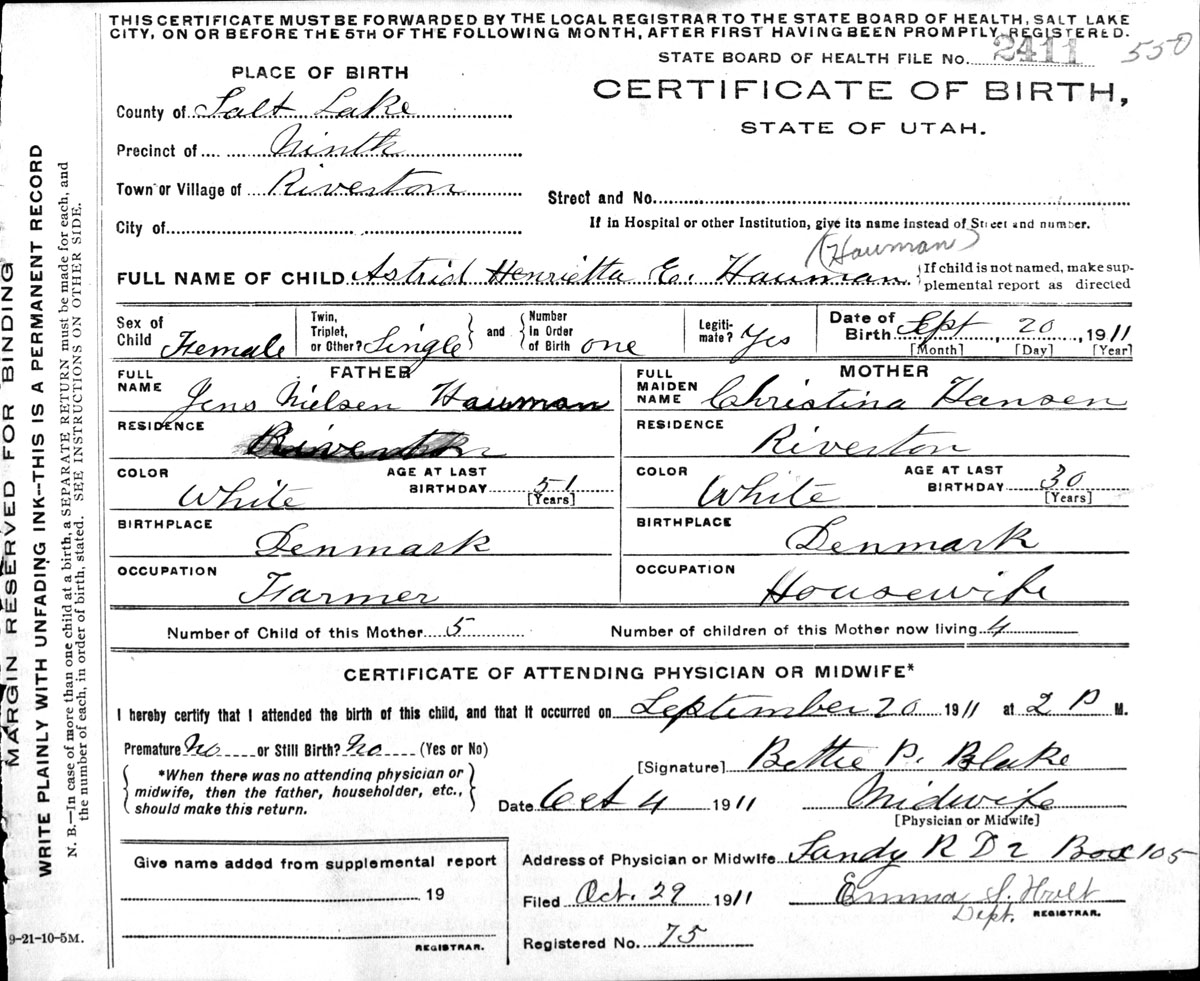 THIS CERTIFICATE MUST BE FORWARDED BY THE LOCAL REGISTRAR TO THE STATE BOARD OF HEALTH, SALT LAKE
CITY, ON OR BEFORE THE 5TH OF THE FOLLOWING MONTH, AFTER FIRST HAVING BEEN PROMPTLY REGISTERED.
STATE BOARD OF HEALTH FILE NO. 2411 550
PLACE OF BIRTH
CERTIFICATE OF BIRTH,
STATE OF UTAH.
County of Salt Lake
Precinct of Ninth
Town or Village of Riverton
Street and No.
City of
If in Hospital or other Institution, give its name instead of Street and number.
(Hauman)
FULL NAME OF CHILD Astrid Henrietta E. Hauman
If child is not named, make sup-
plemental report as directed
Sex of Child Female
Twin, Triplet, or Other? Single
and Number In Order of Birth one
Legiti-mate? Yes
Date of Birth Sept 20, 1911
[Month] [Day] [Year]
FATHER
FULL NAME Jens Nielsen Hauman
RESIDENCE Riverton
COLOR White
AGE AT LAST BIRTHDAY 51
[Years]
BIRTHPLACE Denmark
OCCUPATION Farmer
MOTHER
FULL MAIDEN NAME Christina Hansen
RESIDENCE Riverton
COLOR White
AGE AT LAST BIRTHDAY 30
[Years]
BIRTHPLACE Denmark
OCCUPATION Housewife
Number of Child of this Mother 5 Number of children of this Mother now living 4
CERTIFICATE OF ATTENDING PHYSICIAN OR MIDWIFE*
I hereby certify that I attended the birth of this child, and that it occurred on September 20 1911 at 2 P M.
Premature No or Still Birth? No (Yes or No)
*When there was no attending physician or
midwife, then the father, householder, etc.,
should make this return.
[Signature] Bettie P. Blake
Date Oct 4 1911 Midwife
[Physician or Midwife]
Give name added from supplemental report
19
REGISTRAR.
Address of Physician or Midwife Sandy R D 2 Box 105
Filed Oct. 29 1911 Emma S. Holt
Dept. REGISTRAR.
Registered No. 75
9-21-10-5M.
MARGIN RESERVED FOR BINDING
WRITE PLAINLY WITH UNFADING INK--THIS IS A PERMANENT RECORD
N. B.—In case of more than one child at a birth, a SEPARATE RETURN must be made for each, and
the number of each, in order of birth, stated. SEE INSTRUCTIONS ON OTHER SIDE.